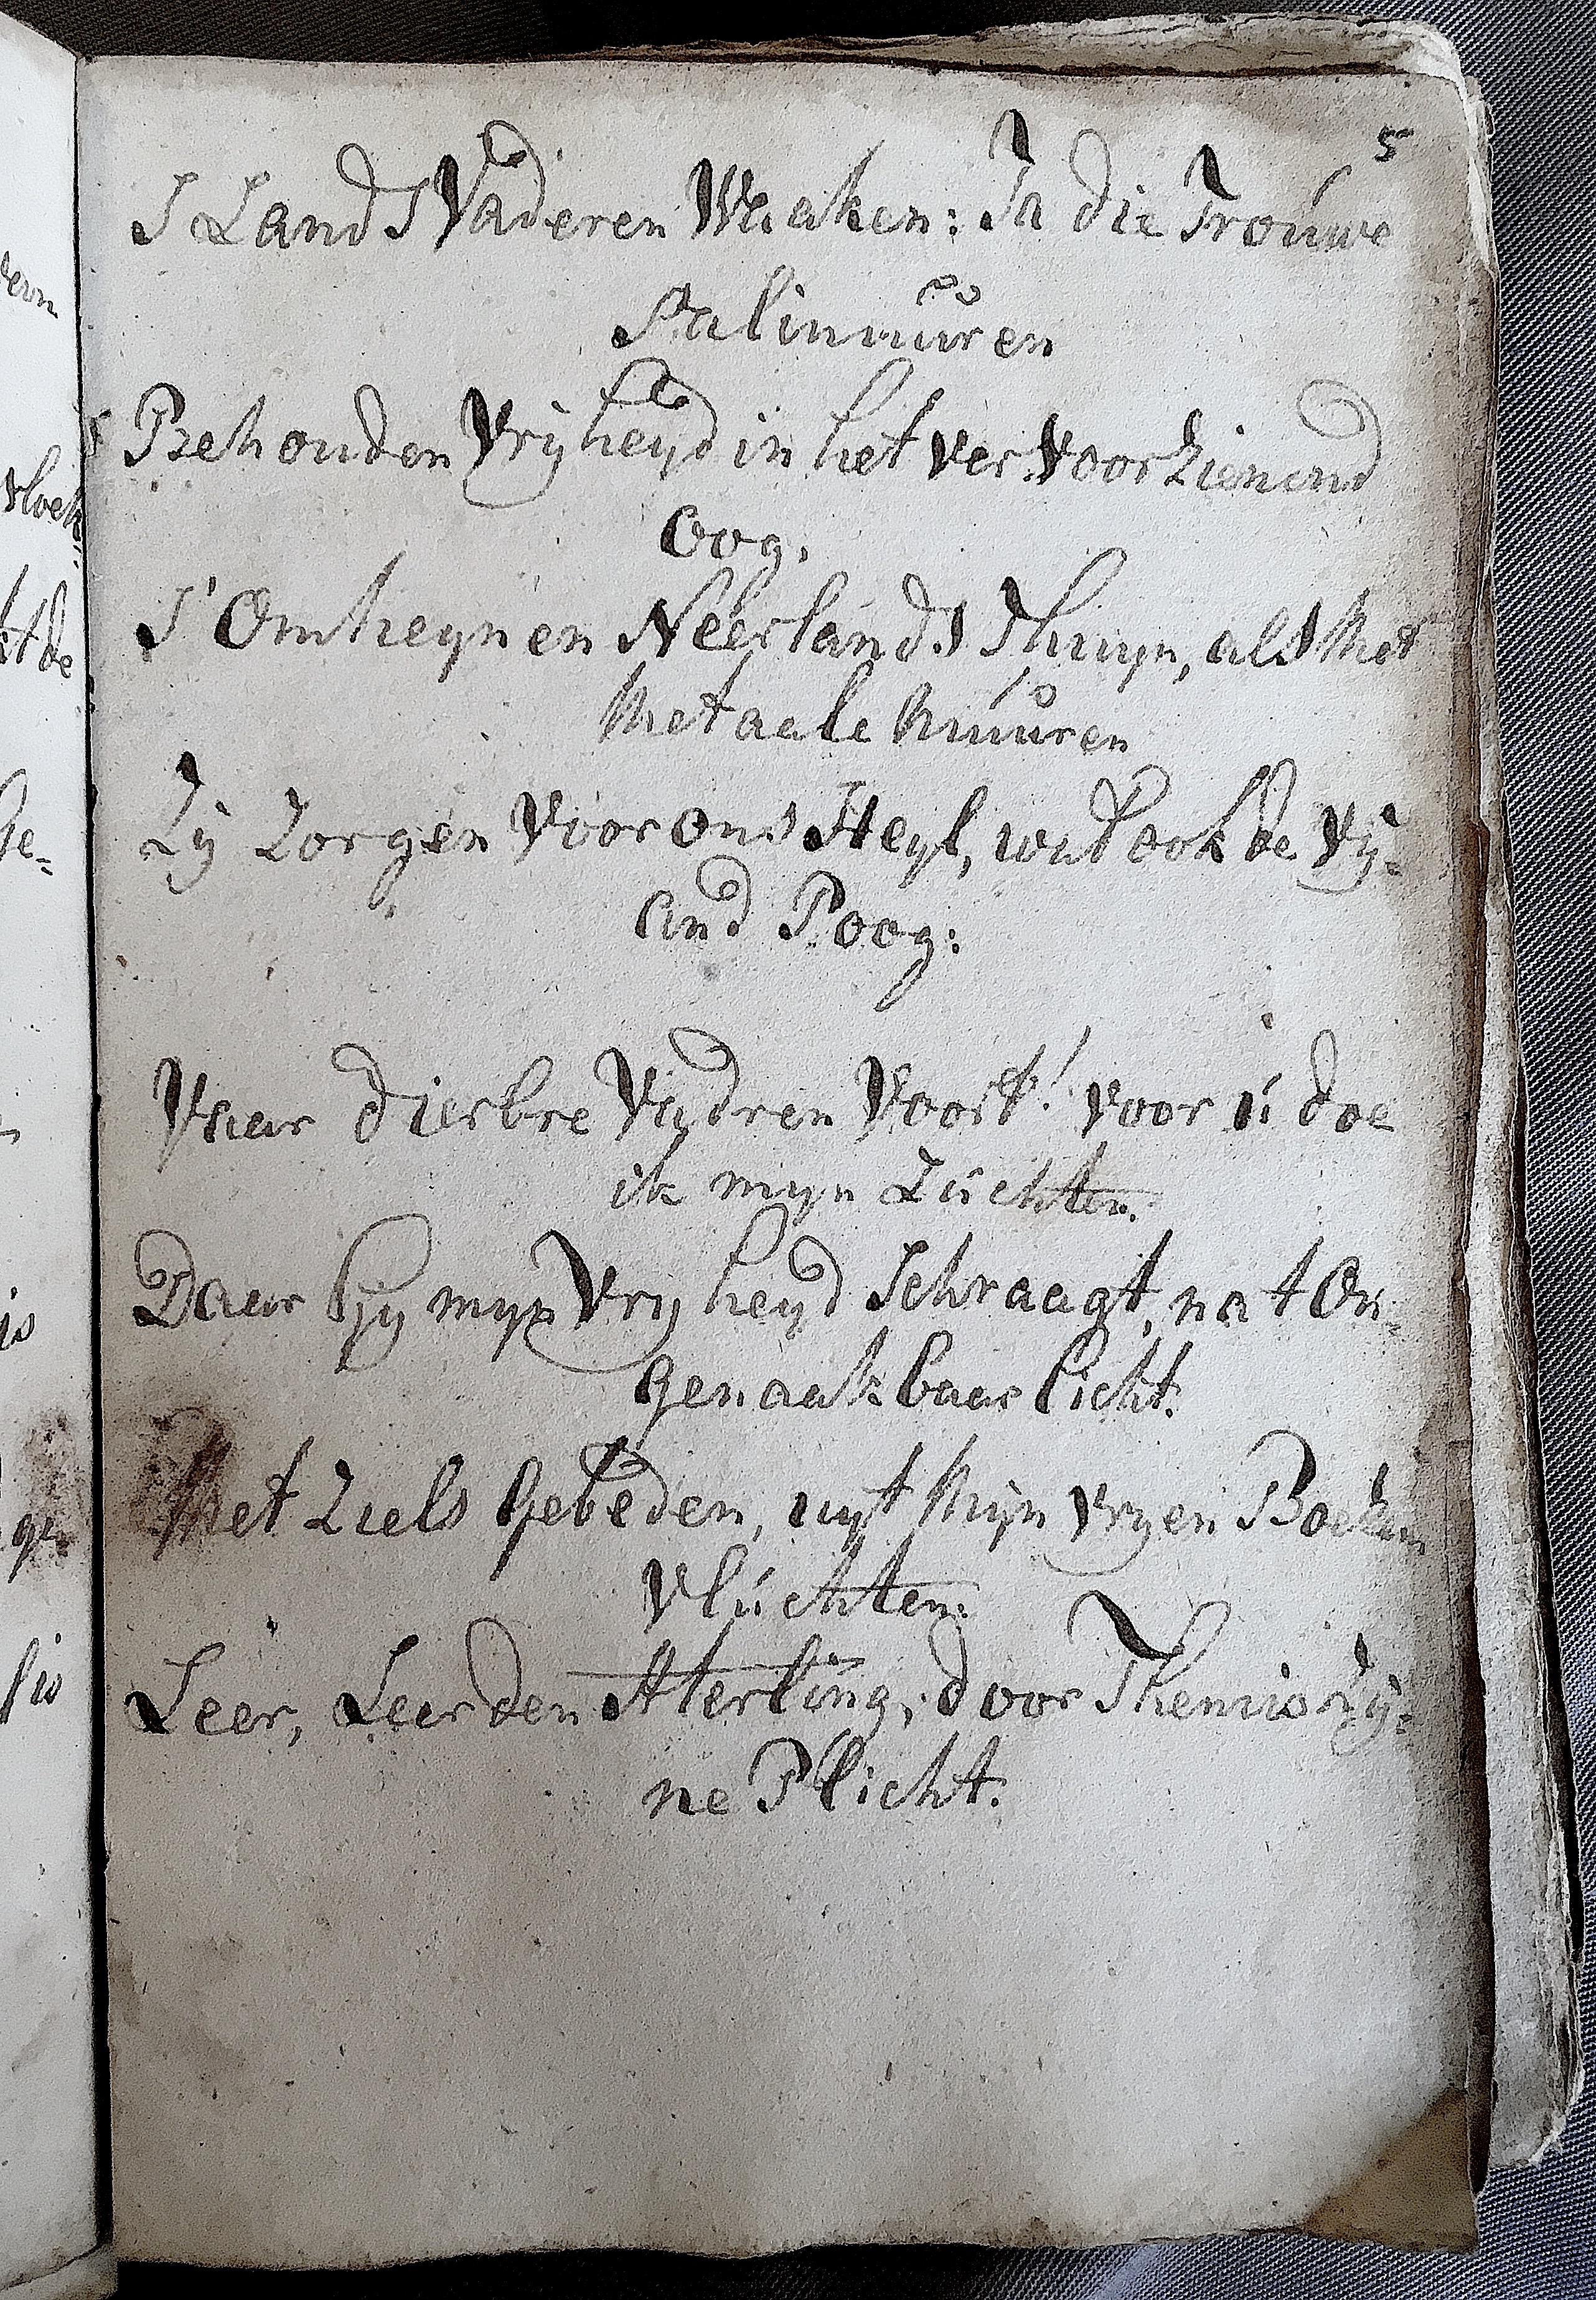 5
S Lands Vaderen Waaken: Ja die Trouwe
Palinuuren
Behouden Vrijheyd in het ver voorzienend
oog.
S'Omheynen Neerlands Thuyn, als Met
Metaale Muuren
Zy Zorgen Voor ons Heyl, wat ook de Vy-
and Poog:
Vaar dierbre Vadren Voort! voor ú doe
ik myn Zúchten.
Daar Gy myn Vryheyd Schraagt, na t On-
genaakbaar licht.
Met Ziels Gebeden, uyt Mijn vryen Boezem
Vlúchten:
Leer, Leer den Sterling, door Themis Zy-
ne Plicht.